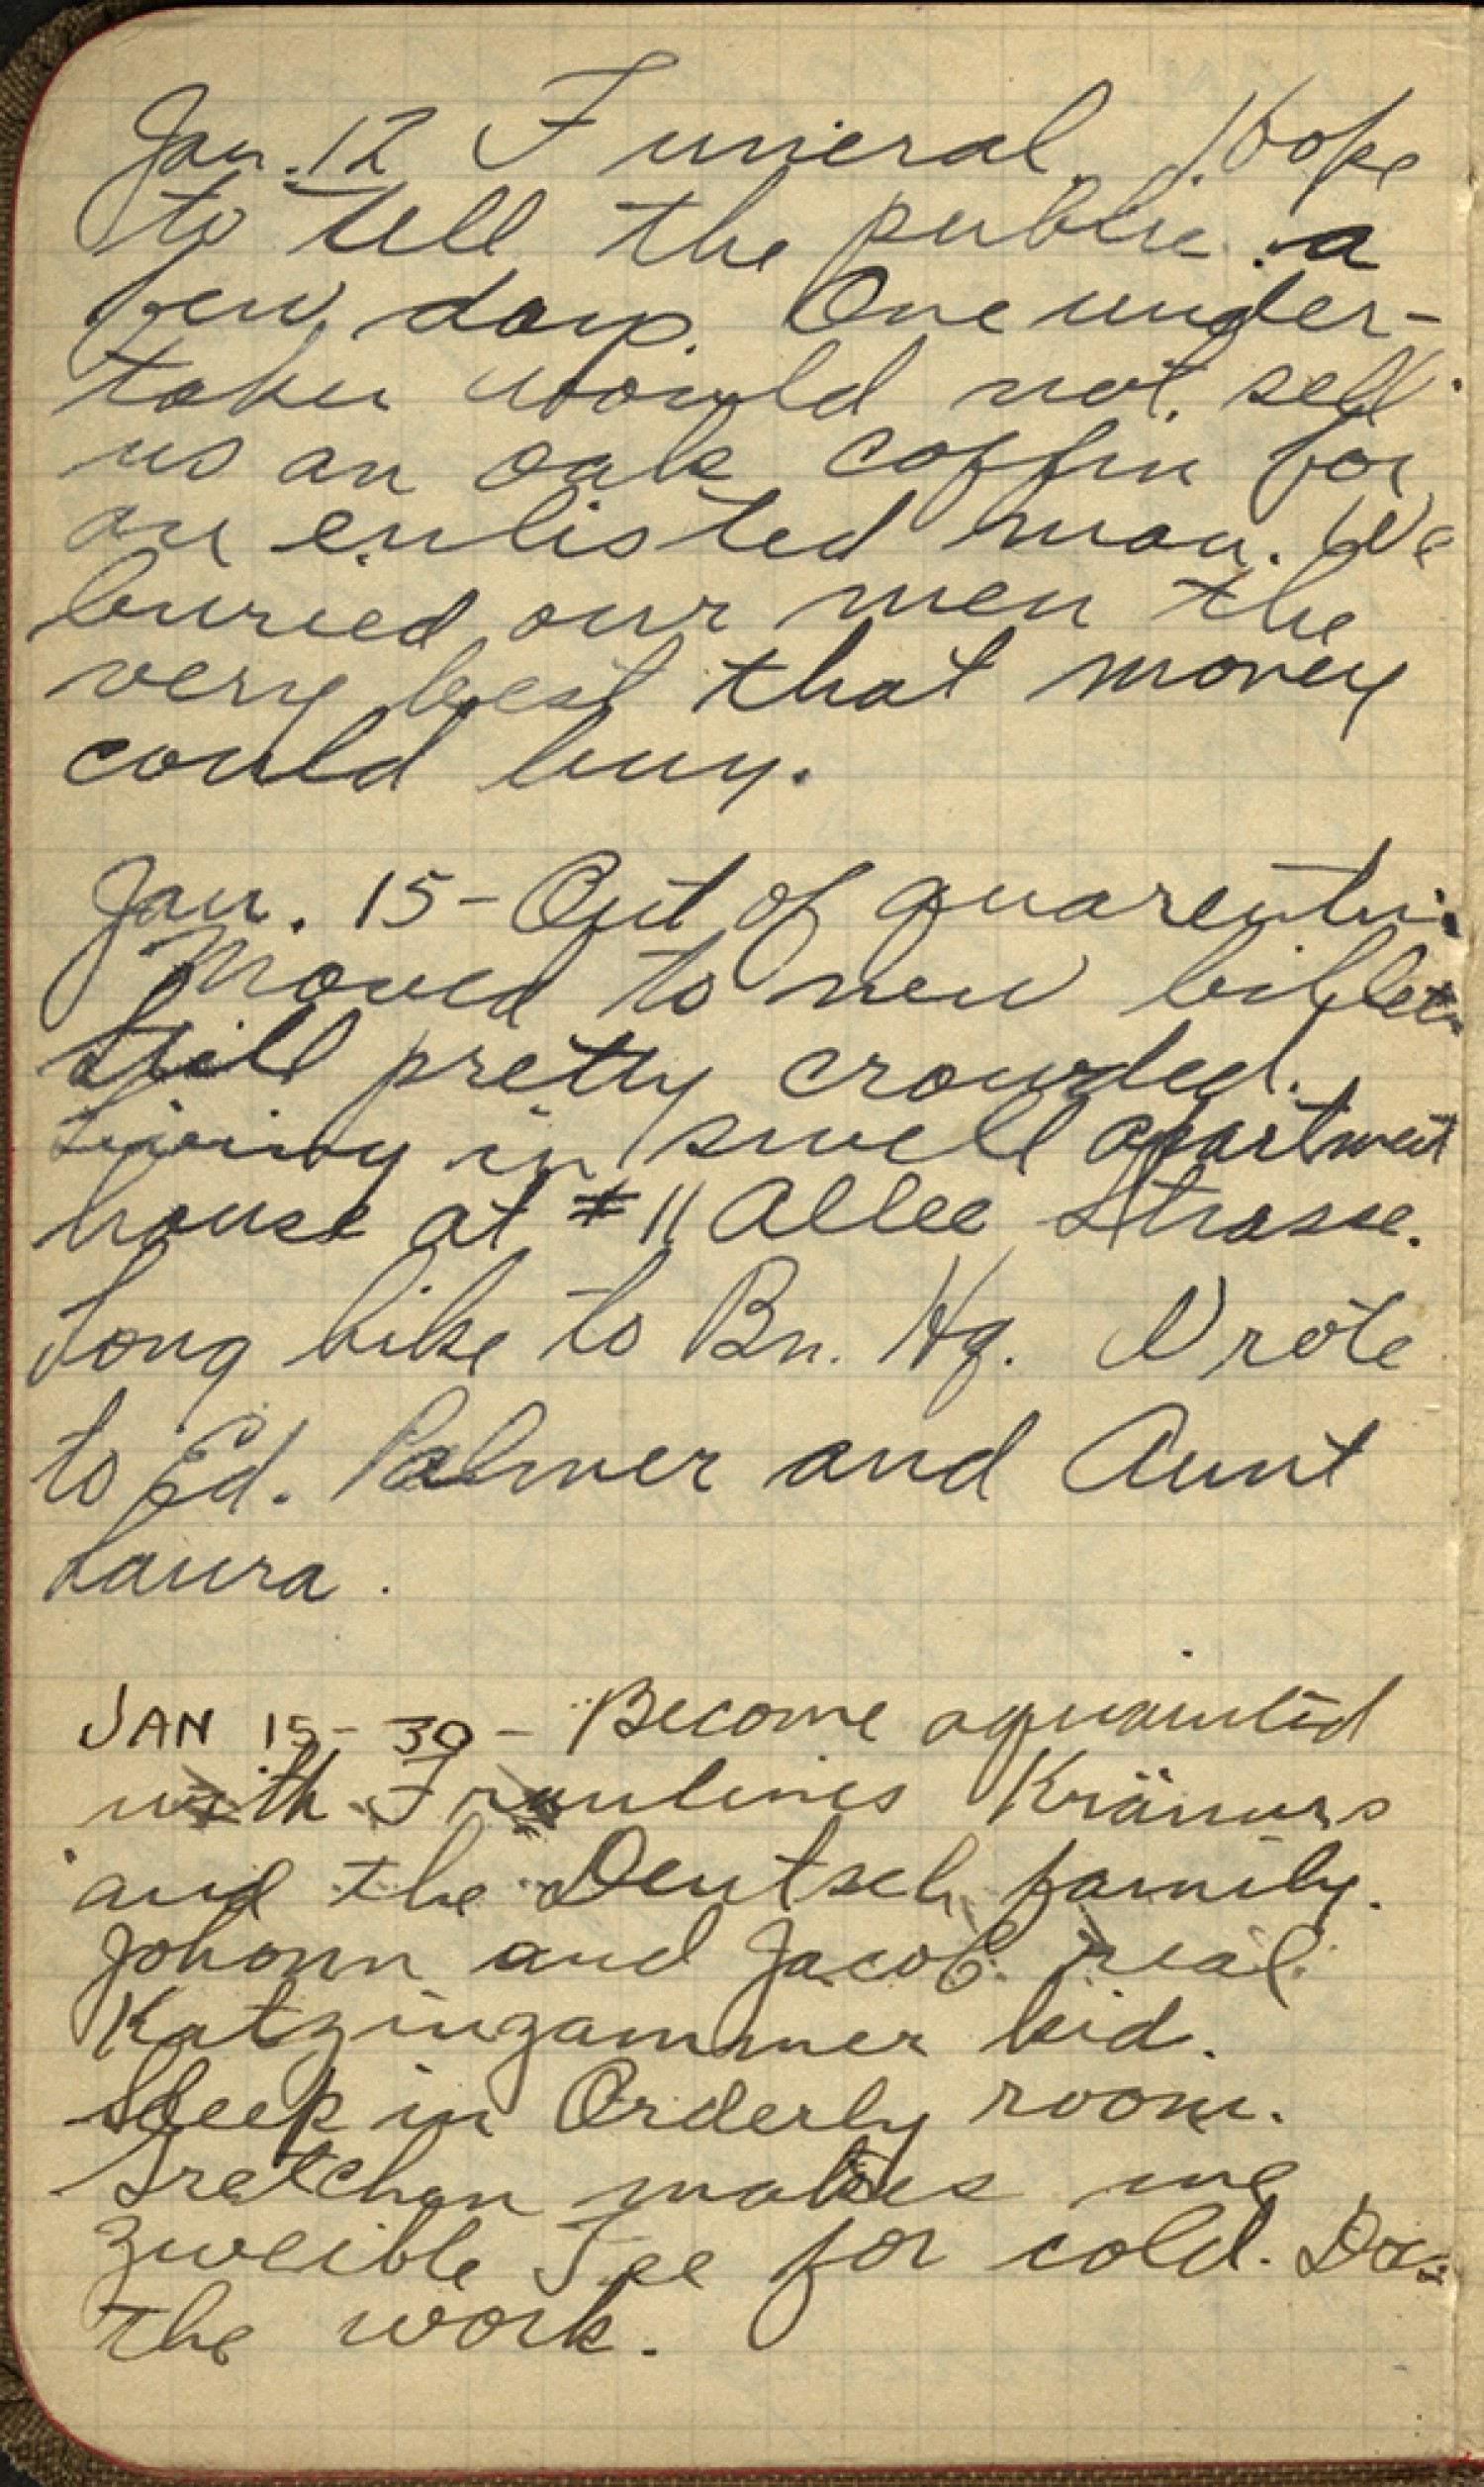 Jan. 12 Funeral. Hope
to tell the public a
few days. One under-
taker would not sell
us an oak coffin for
an enlisted man. We
buried our men the
very best that money
could buy.
Jan. 15 - Out of quarentin
Moved to new billets
still pretty crowded.
Living in swell apartment
house at #11 Allee Strasse.
Long hike to Bn. Hq. Wrote
to Ed. Palmer and Aunt
Laura.
JAN 15 - 30 - Become aquainted
with Fraulines Krämers
and the Deutsch family.
Johann and Jacob real
Katzinzammer kid.
Sleep in Orderly room.
Gretchen makes me
zweible Tee for cold. Does
the work.